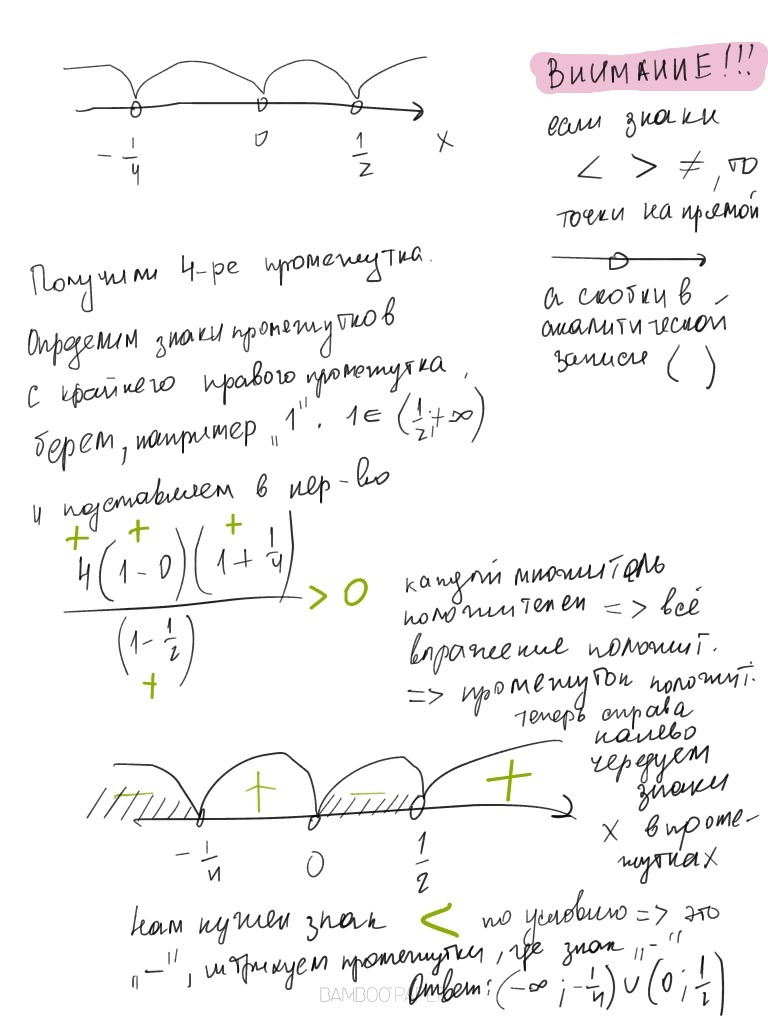 -1/4 0 1/2 x
ВНИМАНИЕ!!!
если знаки
< > ≠, то
точки на прямой
а скобки в
аналитической
записи ( )
Получили 4-ре промежутка.
Опрделим знаки промежутков
с крайнего правого промежутка,
берем, например „1". 1 ∈ (1/2; +∞)
и подставляем в нер-во
+ + +
4(1-0)(1+1/4)
> 0
(1-1/2)
+
каждый множитель
положителен => всё
выражение положит.
=> промежуток положит.
теперь справа
налево
чередуем
знаки
в проме-
жутках
- + - +
-1/4 0 1/2 x
Нам нужен знак < по условию => это
„-", штрихуем промежутки, где знак „-"
Ответ: (-∞; -1/4) ∪ (0; 1/2)
BAMBOO PAPER